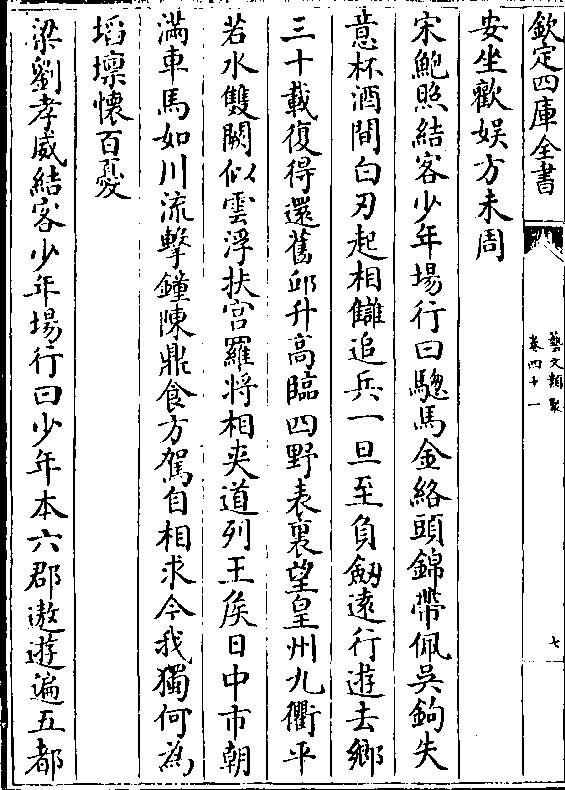 欽定四庫全書
藝文類聚
卷四十一
七
安坐歡娱方未周
宋鮑照結客少年場行曰驄馬金絡頭錦帶佩吳鉤失
意杯酒間白刃起相讎追兵一旦至負劒逺行遊去鄉
三十載復得還舊邱升髙臨四野表裏望皇州九衢平
若水雙闕似雲浮扶宫羅將相夾道列王侯日中市朝
滿車馬如川流擊鐘陳鼎食方駕自相求今我獨何為
壈懷百憂
梁劉孝威結客少年場行曰少年本六郡遨遊遍五都